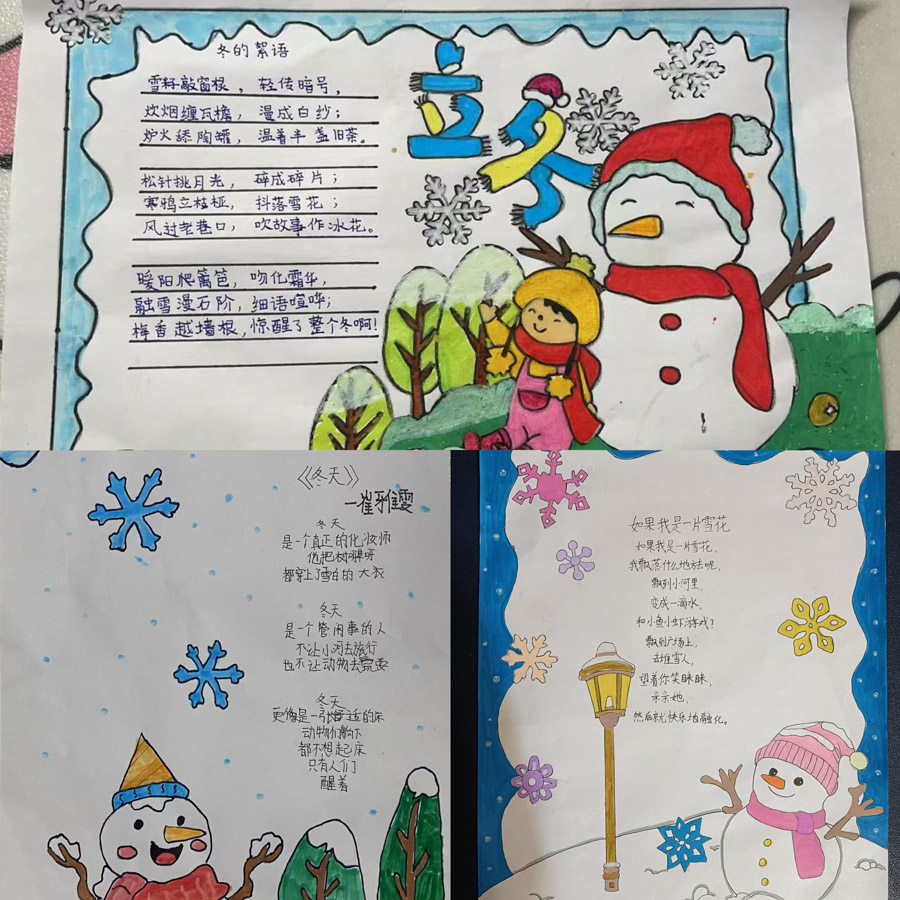 冬的絮语
雪籽敲窗棂，轻传暗号，
炊烟缠瓦檐，漫成白纱；
炉火舔陶罐，温着半盏旧茶。
松针挑月光，碎成碎片；
寒鸦立枯桠，抖落雪花；
风过老巷口，吹故事作冰花。
暖阳爬篱笆，吻化霜华，
融雪漫石阶，细语喧哗；
梅香越墙根，惊醒了整个冬啊！
立冬
《冬天》
崔雅雯
冬天
是一个真正的化妆师
他把树啊呀
都穿上了雪白的大衣
冬天
是一个管闲事的人
不让小河去旅行
也不让动物去
冬天
更像是一张舒适的床
动物们躺下
都不想起床
只有人们
醒着
如果我是一片雪花
如果我是一片雪花，
我飘落什么地方去呢，
飘到小河里，
变成一滴水，
和小鱼小虾游戏？
飘到广场上，
去堆雪人，
望着你笑眯眯，
亲亲她，
然后就快乐地融化。